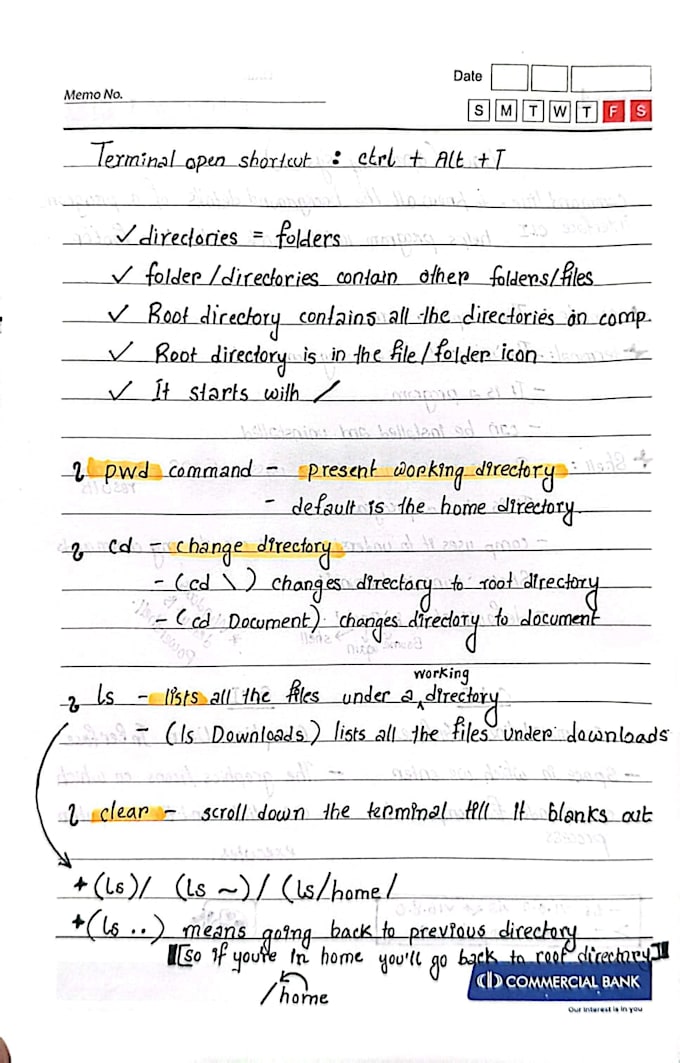 Date
Memo No.
S M T W T F S
Terminal open shortcut : ctrl + Alt + T
✓ directories = folders
✓ folder / directories contain other folders/files
✓ Root directory contains all the directories on comp.
✓ Root directory is in the file / folder icon.
✓ It starts with /
pwd command - present working directory
- default is the home directory
cd - change directory
- (cd \) changes directory to root directory
- (cd Document) changes directory to document
working
ls - lists all the files under a ^ directory
- (ls Downloads) lists all the files under downloads
clear - scroll down the terminal till it blanks out
+ (ls)/ (ls ~)/ (ls/home/
+ (ls ..) means going back to previous directory
[so if you're in home you'll go back to root directory]
/home
COMMERCIAL BANK
Our interest is in you